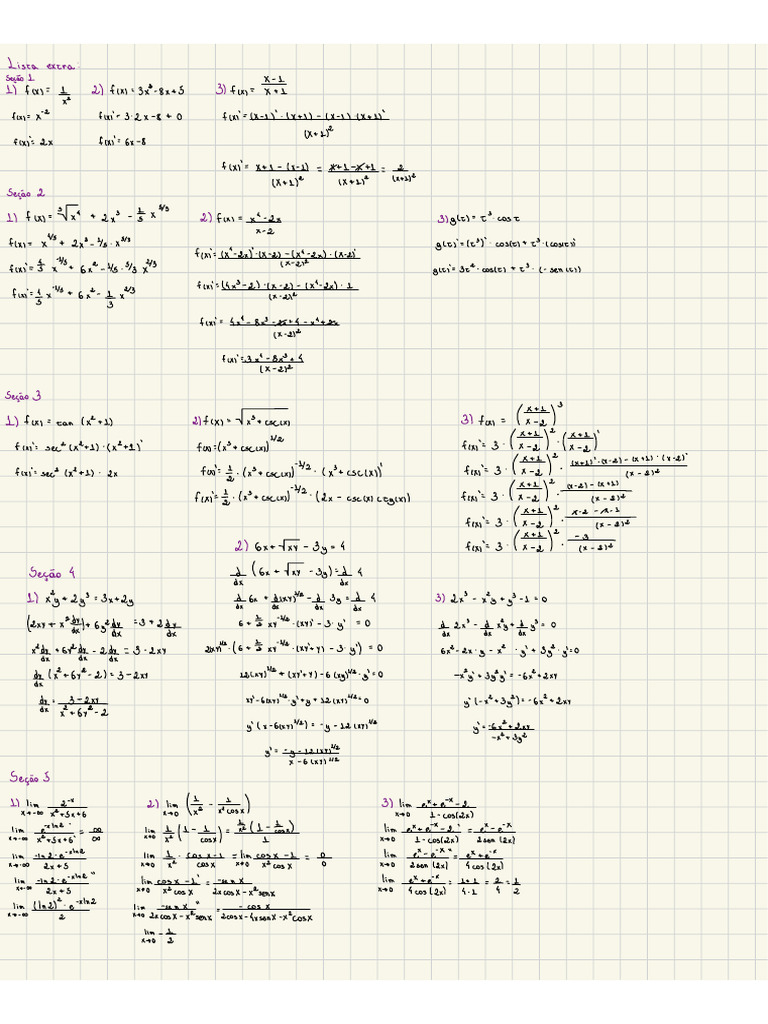 Lista extra:
Seção 1
1) f(x) = 1/x²
f(x) = x⁻²
f(x)' = 2x
2) f(x) = 3x² - 8x + 5
f(x)' = 3 · 2x - 8 + 0
f(x)' = 6x - 8
3) f(x) = (x - 1)/(x + 1)
f(x)' = ((x-1)' · (x+1) - (x-1)·(x+1)')/(x+1)²
f(x)' = (x+1 - (x-1))/(x+1)² = (x+1-x+1)/(x+1)² = 2/(x+1)²
Seção 2
1) f(x) = ³√x⁴ + 2x³ - 1/5 x^(5/3)
f(x) = x^(4/3) + 2x³ - 1/5 · x^(5/3)
f(x)' = 4/3 x^(-1/3) + 6x² - 1/5 · 5/3 x^(2/3)
f(x)' = 4/3 x^(-1/3) + 6x² - 1/3 x^(2/3)
2) f(x) = (x⁴ - 2x)/(x - 2)
f(x)' = ((x⁴-2x)' · (x-2) - (x⁴-2x) · (x-2)')/(x-2)²
f(x)' = ((4x³-2) · (x-2) - (x⁴-2x) · 1)/(x-2)²
f(x)' = (4x⁴ - 8x³ - 2x + 4 - x⁴ + 2x)/(x-2)²
f(x)' = (3x⁴ - 8x³ + 4)/(x-2)²
3) g(t) = t³ cos t
g(t)' = (t³)' · cos(t) + t³ · (cos(t))'
g(t)' = 3t² · cos(t) + t³ · (- sen(t))
Seção 3
1) f(x) = tan (x² + 1)
f(x)' = sec² (x²+1) · (x²+1)'
f(x)' = sec² (x²+1) · 2x
2) f(x) = √(x³ + csc(x))
f(x) = (x³ + csc(x))^(1/2)
f(x)' = 1/2 · (x³ + csc(x))^(-1/2) · (x³ + csc(x))'
f(x)' = 1/2 · (x³ + csc(x))^(-1/2) · (2x - csc(x) ctg(x))
3) f(x) = ((x+1)/(x-2))³
f(x)' = 3 · ((x+1)/(x-2))² · ((x+1)/(x-2))'
f(x)' = 3 · ((x+1)/(x-2))² · ((x+1)' · (x-2) - (x+1) · (x-2)')/(x-2)²
f(x)' = 3 · ((x+1)/(x-2))² · ((x-2) - (x+1))/(x-2)²
f(x)' = 3 · ((x+1)/(x-2))² · (x-2-x-1)/(x-2)²
f(x)' = 3 · ((x+1)/(x-2))² · -3/(x-2)²
Seção 4
1) x²y + 2y³ = 3x + 2y
(2xy + x² dy/dx) + 6y² dy/dx = 3 + 2 dy/dx
x² dy/dx + 6y² dy/dx - 2 dy/dx = 3 - 2xy
dy/dx (x² + 6y² - 2) = 3 - 2xy
dy/dx = (3 - 2xy)/(x² + 6y² - 2)
2) 6x + √xy - 3y = 4
d/dx (6x + √xy - 3y) = d/dx 4
d/dx 6x + d/dx (xy)^(1/2) - d/dx 3y = d/dx 4
6 + 1/2 xy^(-1/2) · (xy)' - 3 · y' = 0
2xy^(1/2) · (6 + 1/2 xy^(-1/2) · (xy' + y) - 3 · y') = 0
12(xy)^(1/2) + (xy' + y) - 6(xy)^(1/2) · y' = 0
xy' - 6(xy)^(1/2) · y' + y + 12(xy)^(1/2) = 0
y' (x - 6(xy)^(1/2)) = -y - 12(xy)^(1/2)
y' = (-y - 12(xy)^(1/2))/(x - 6(xy)^(1/2))
3) 2x³ - x²y + y³ - 1 = 0
d/dx 2x³ - d/dx x²y + d/dx y³ = 0
6x² - 2x · y - x² · y' + 3y² · y' = 0
-x²y' + 3y²y' = -6x² + 2xy
y' (-x² + 3y²) = -6x² + 2xy
y' = (-6x² + 2xy)/(-x² + 3y²)
Seção 5
1) lim x→-∞ 2⁻ˣ/(x² + 5x + 6)
lim x→-∞ e^(-xln2)'/(x² + 5x + 6)' = ∞/∞
lim x→-∞ (-ln2 · e^(-xln2))/(2x + 5)
lim x→-∞ (-ln2 · e^(-xln2))''/(2x + 5)
lim x→-∞ ((ln2)² · e^(-xln2))/2
2) lim x→0 (1/x² - 1/(x²cosx))
lim x→0 1/x² (1 - 1/cosx) = (1/x² (1 - 1/cosx))/1
lim x→0 1/x² · (cosx - 1)/cosx = lim x→0 (cosx - 1)/(x²cosx) = 0/0
lim x→0 (cosx - 1)'/(x²cosx) = -senx/(2xcosx - x²senx)
lim x→0 -senx''/(2xcosx - x²senx) = -cosx/(2cosx - 4xsenx - x²cosx)
lim x→0 -1/2
3) lim x→0 (eˣ + e⁻ˣ - 2)/(1 - cos(2x))
lim x→0 (eˣ + e⁻ˣ - 2)'/(1 - cos(2x)) = (eˣ - e⁻ˣ)/(2sen(2x))
lim x→0 (eˣ - e⁻ˣ)''/(2sen(2x)) = (eˣ + e⁻ˣ)/(4cos(2x))
lim x→0 (eˣ + e⁻ˣ)/(4cos(2x)) = (1+1)/(4·1) = 2/4 = 1/2